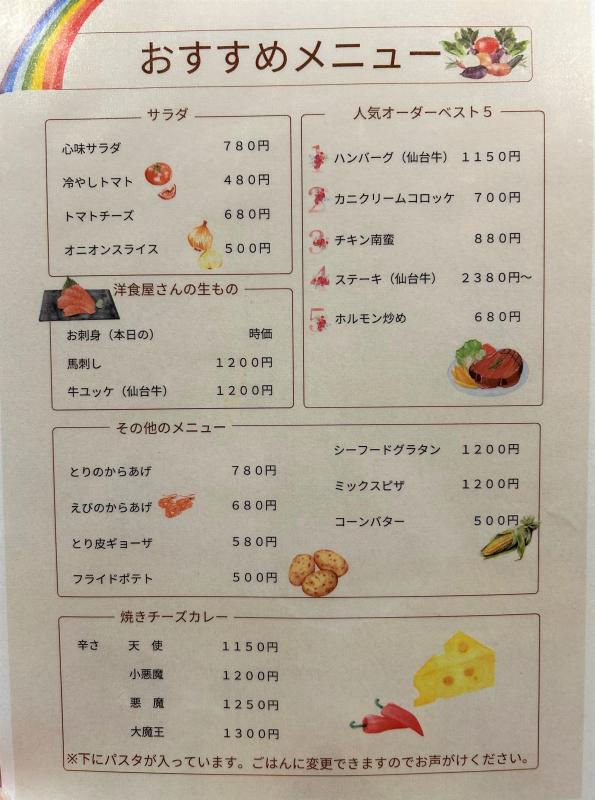 おすすめメニュー
サラダ
心味サラダ ７８０円
冷やしトマト ４８０円
トマトチーズ ６８０円
オニオンスライス ５００円
人気オーダーベスト５
1 ハンバーグ（仙台牛） １１５０円
2 カニクリームコロッケ ７００円
3 チキン南蛮 ８８０円
4 ステーキ（仙台牛） ２３８０円～
5 ホルモン炒め ６８０円
洋食屋さんの生もの
お刺身（本日の） 時価
馬刺し １２００円
牛ユッケ（仙台牛） １２００円
その他のメニュー
とりのからあげ ７８０円
えびのからあげ ６８０円
とり皮ギョーザ ５８０円
フライドポテト ５００円
シーフードグラタン １２００円
ミックスピザ １２００円
コーンバター ５００円
焼きチーズカレー
辛さ 天　使 １１５０円
小悪魔 １２００円
悪　魔 １２５０円
大魔王 １３００円
※下にパスタが入っています。ごはんに変更できますのでお声がけください。